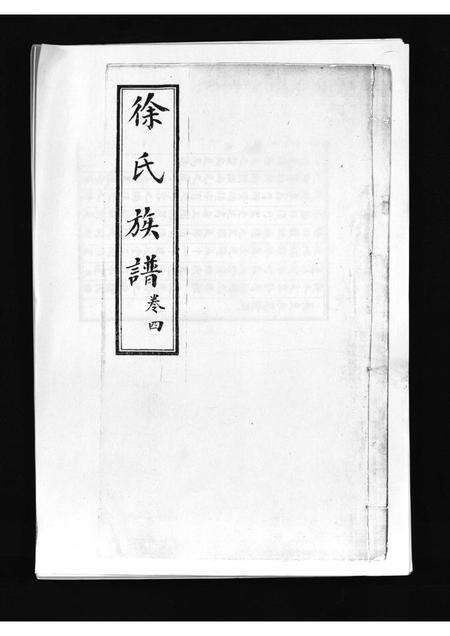 徐氏族譜卷四